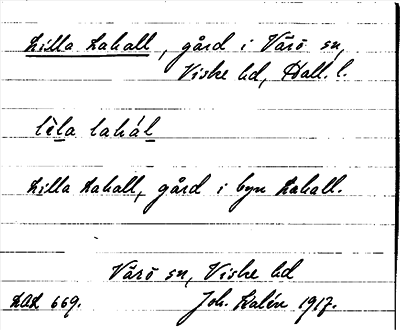 Lilla Lahall, gård i Värö sn,
Viske hd, Hall. l.
lìla lahál
Lilla Lahall, gård i byn Lahall.
Värö sn, Viske hd
LAL 669. Joh. Kalén 1917.